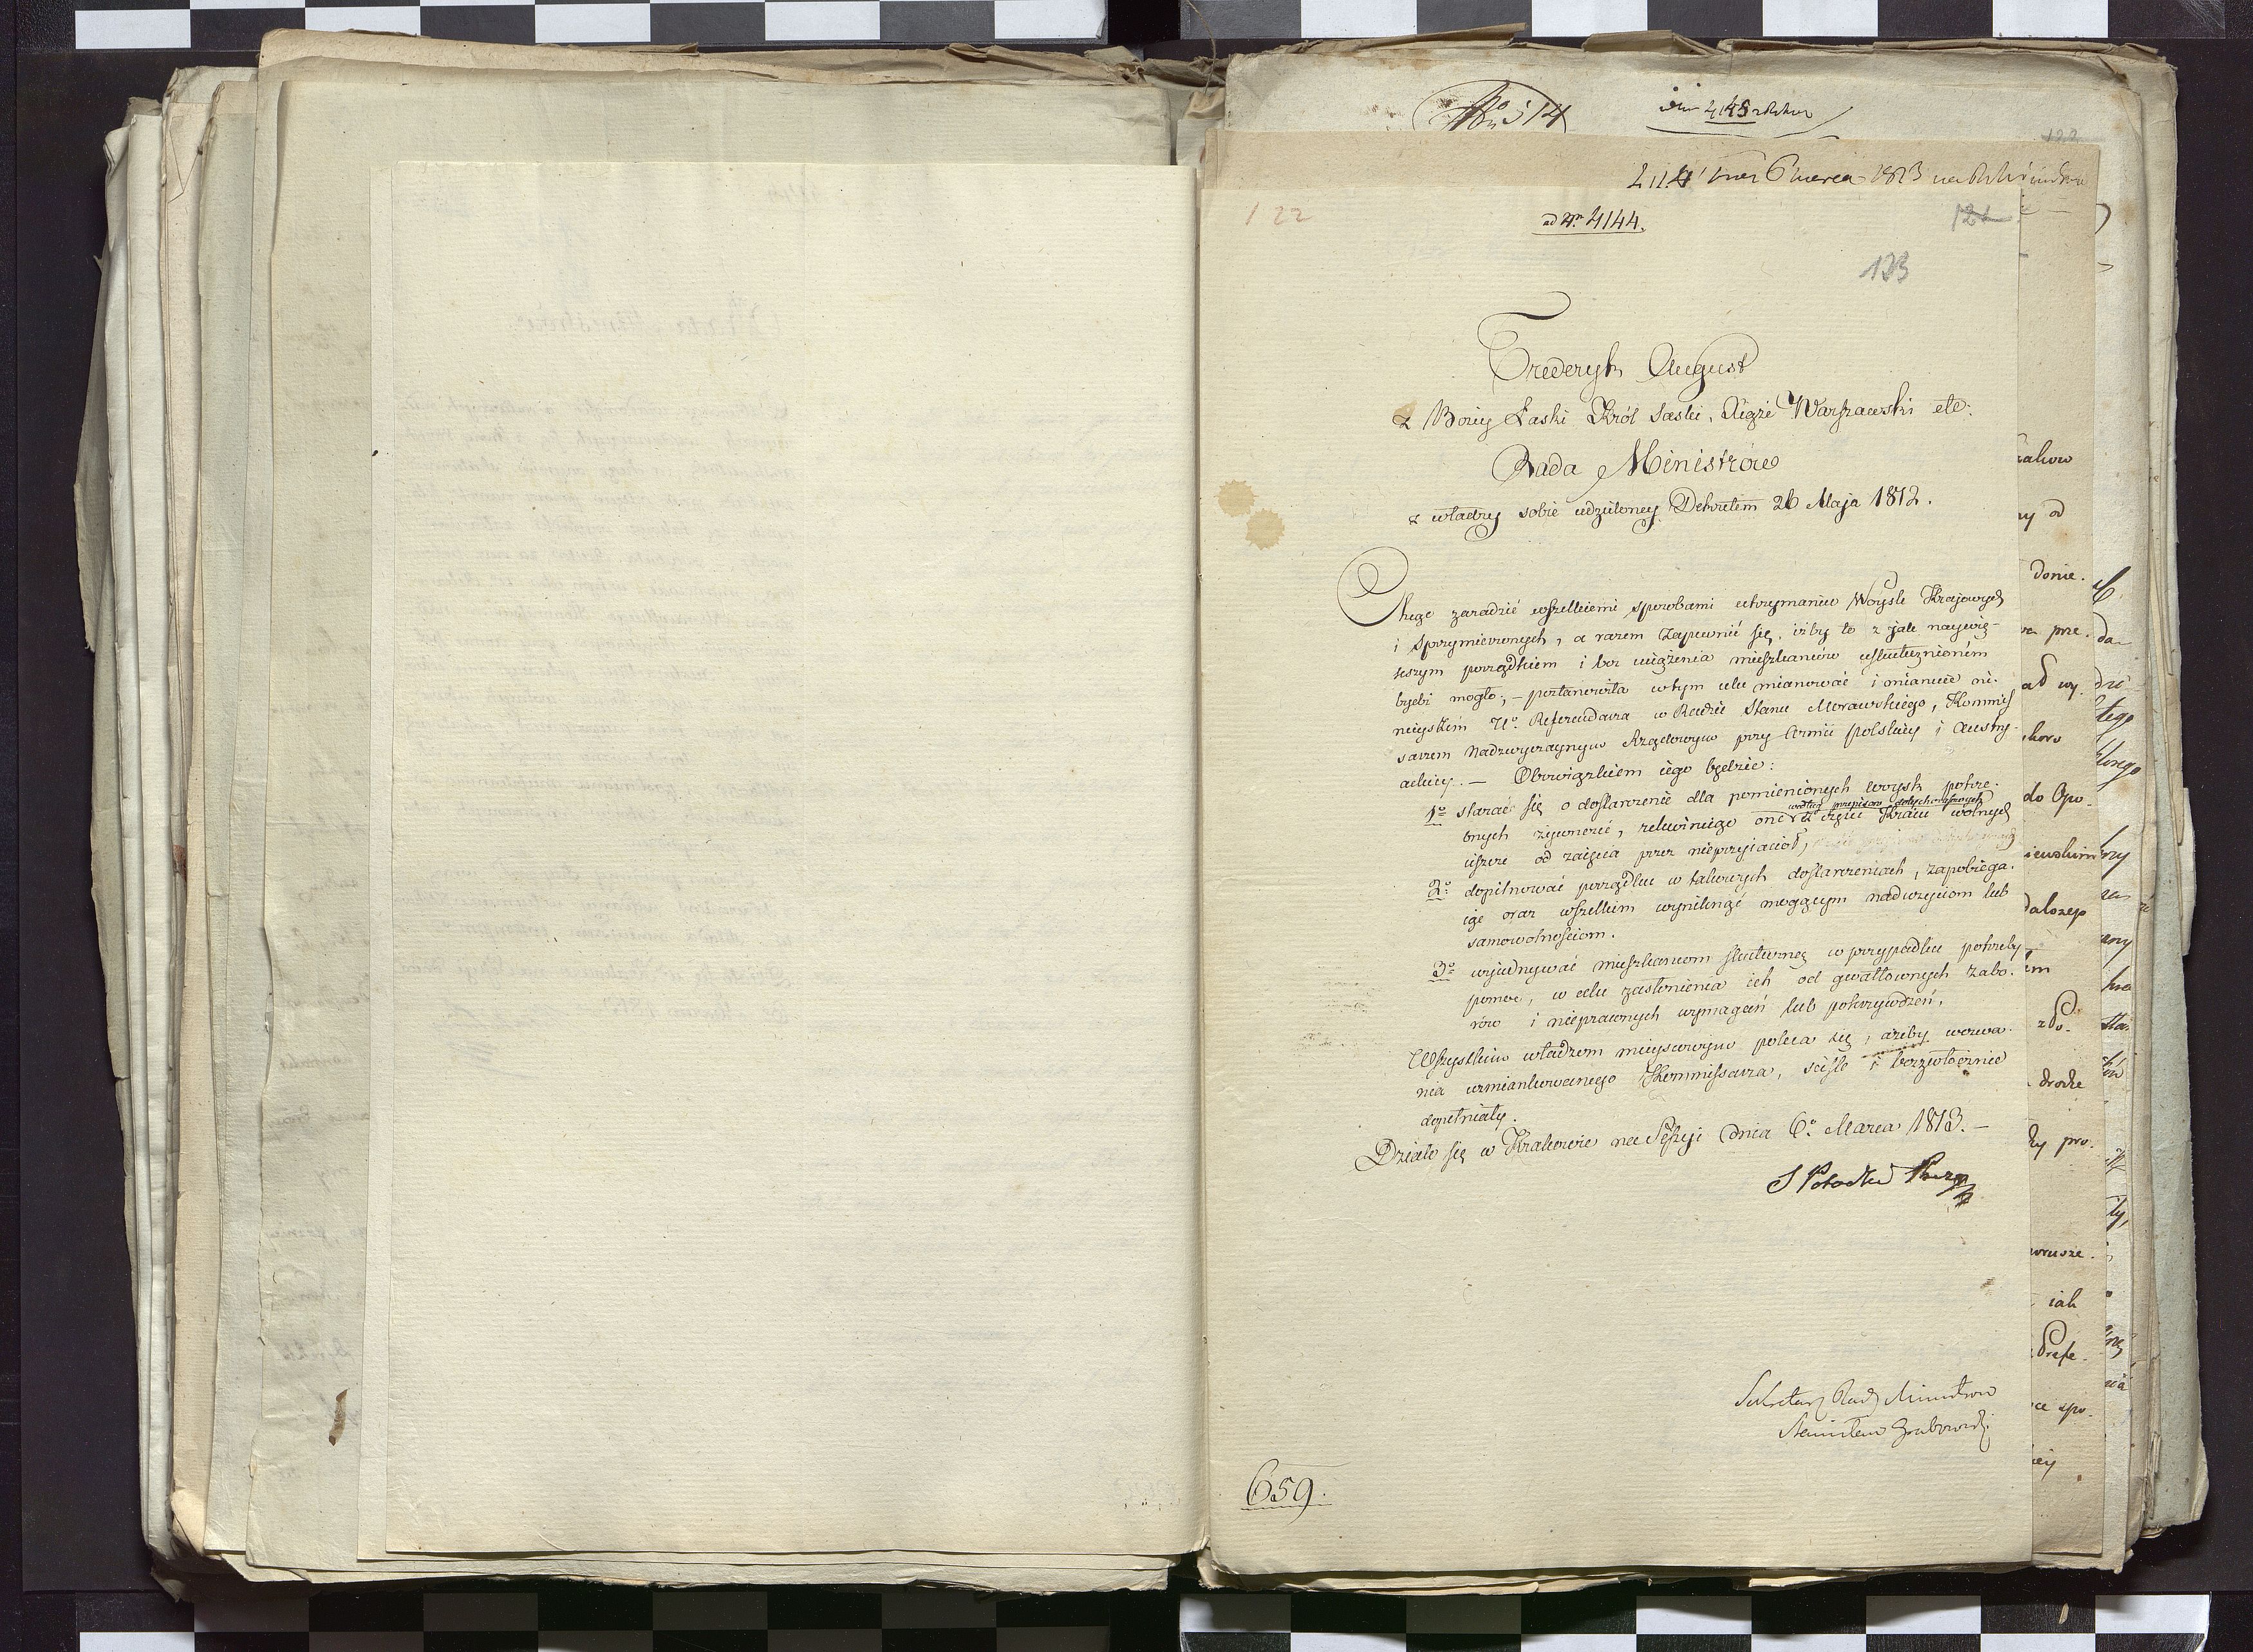 122
ad Nr. 4144.
122
123
Frederyk August
z Bożey Łaski Król Saski, Xiąże Warszawski etc:
Rada Ministrów
z władzy sobie udzieloney Dekretem 26 Maja 1812.
Chcąc zaradzić wszelkiemi sposobami utrzymaniu Woysk Kraiowych
i Sprzymierzonych, a razem zapewnić się, iżby to z jak naywię-
kszym porządkiem i bez uciążenia mieszkańców uskutecznioném
bydź mogło; – postanowiła w tym celu mianować i mianuie ni-
nieyszém Ur. Referendarza w Radzie Stanu Morawskiego, Kommis
sarzem Nadzwyczaynym Rządowym przy Armii polskiey i Austry-
ackiey. – Obowiązkiem iego będzie:
1o starać się o dostarczenie dla pomienionych woysk potrze-
według przepisów dotychczasowych
bnych żywności, rekwiruiąc one z części Kraiu wolnych
ieszcze od zaięcia przez nieprzyiaciół,
2o dopilnować porządku w takowych dostarczeniach, zapobiega-
iąc oraz wszelkim wyniknąć mogącym nadużyciom lub
samowolnościom.
3o wyiednywać mieszkańcom skuteczną w przypadku potrzeby
pomoc, w celu zasłonienia ich od gwałtownych zabo-
rów i nieprawnych wymagań lub pokrzywdzeń.
Wszystkim władzom mieyscowym poleca się, ażeby wezwa-
nia wzmiankowanego Kommissarza, ściśle i bezzwłocznie
dopełniały.
Działo się w Krakowie na Sessyi dnia 6o Marca 1813. –
S Potocki Prezes
Sekretarz Rady Ministrow
Stanisław Grabowski
659.